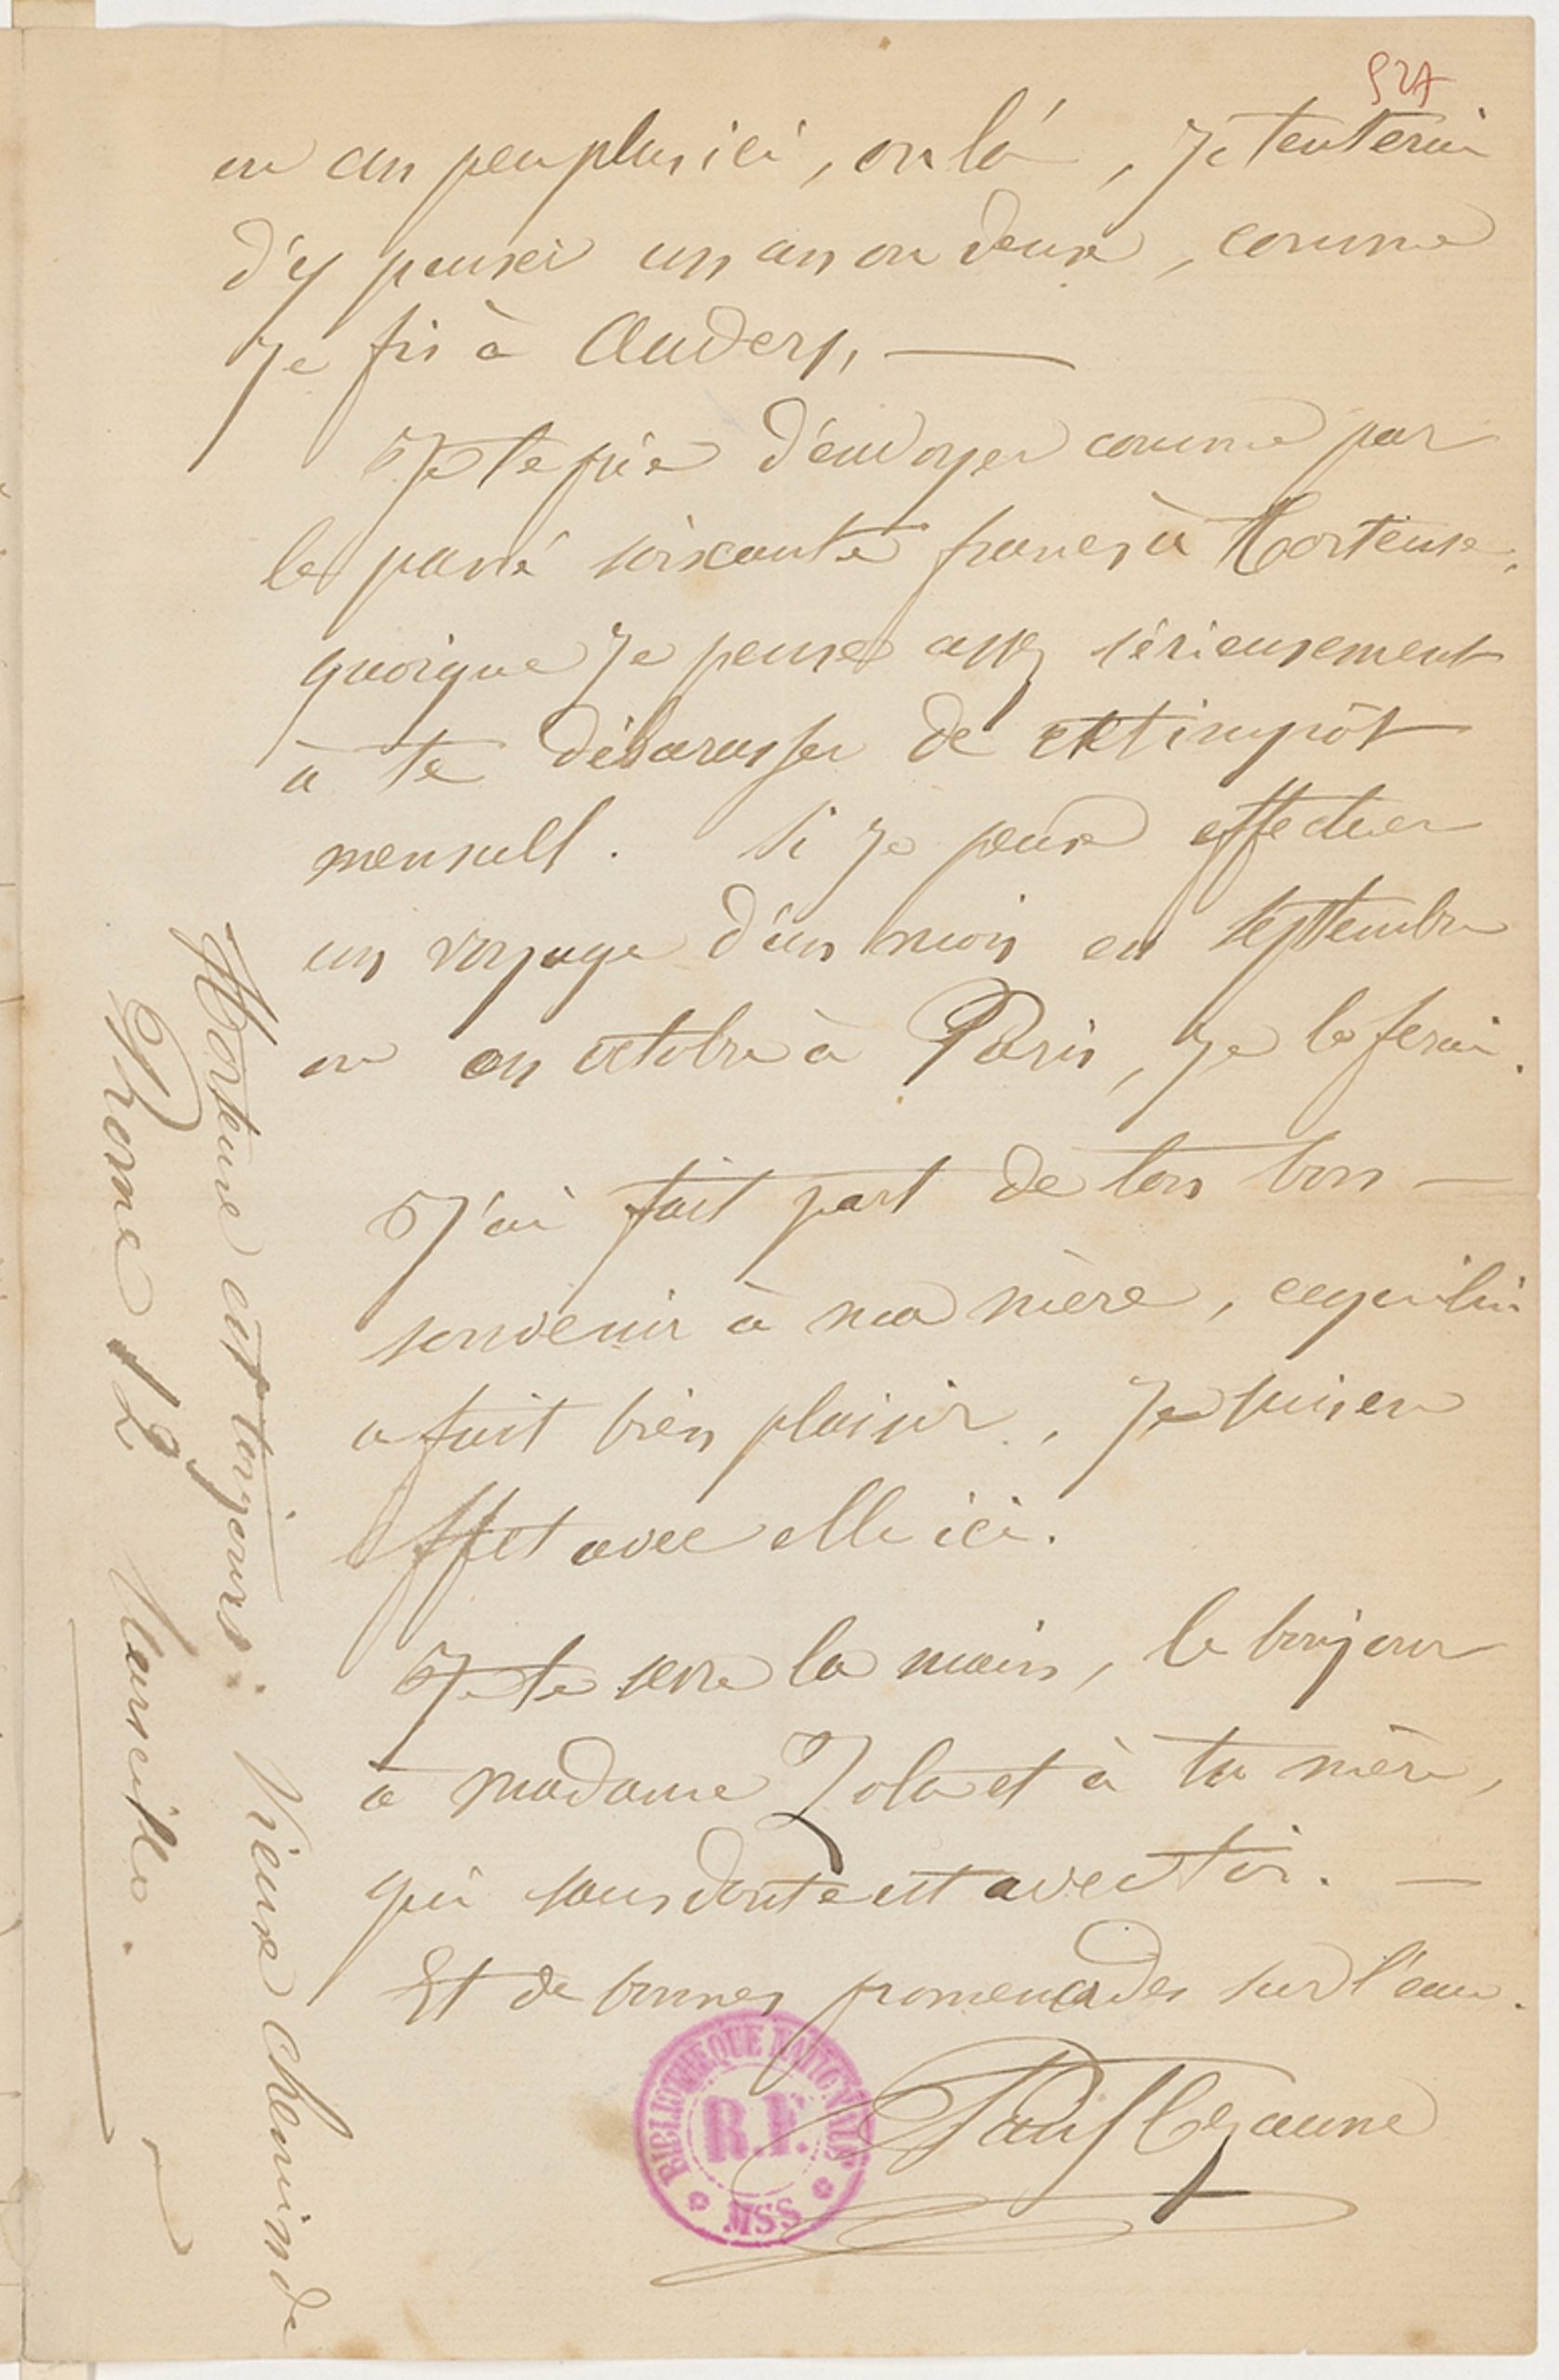 527
ou un peu plus ici, ou là, je tenterai
d'y passer un an ou deux, comme
je fis à Auvers, —
Je te prie d'envoyer comme par
le passé soixante francs à Hortense,
quoique je pense assez sérieusement
à te débarasser de cet impôt
mensuell. Si je peux effectuer
un voyage d'un mois en septtembre
ou en octobre à Paris, je le ferai.
J'ai fait part de ton bon —
souvenir à ma mère, ce qui lui
a fait bien plaisir, je suis en
effet avec elle ici.
Je te serre la main, le bonjour
à madame Zola et à ta mère,
qui sans doute est avec toi. —
Et de bonnes promenades sur l'eau.
Paul Cezanne
Hortense est toujours: Vieux chemin de
Rome 12 Marseille.
BIBLIOTHEQUE NATIONALE
R.F.
MSS